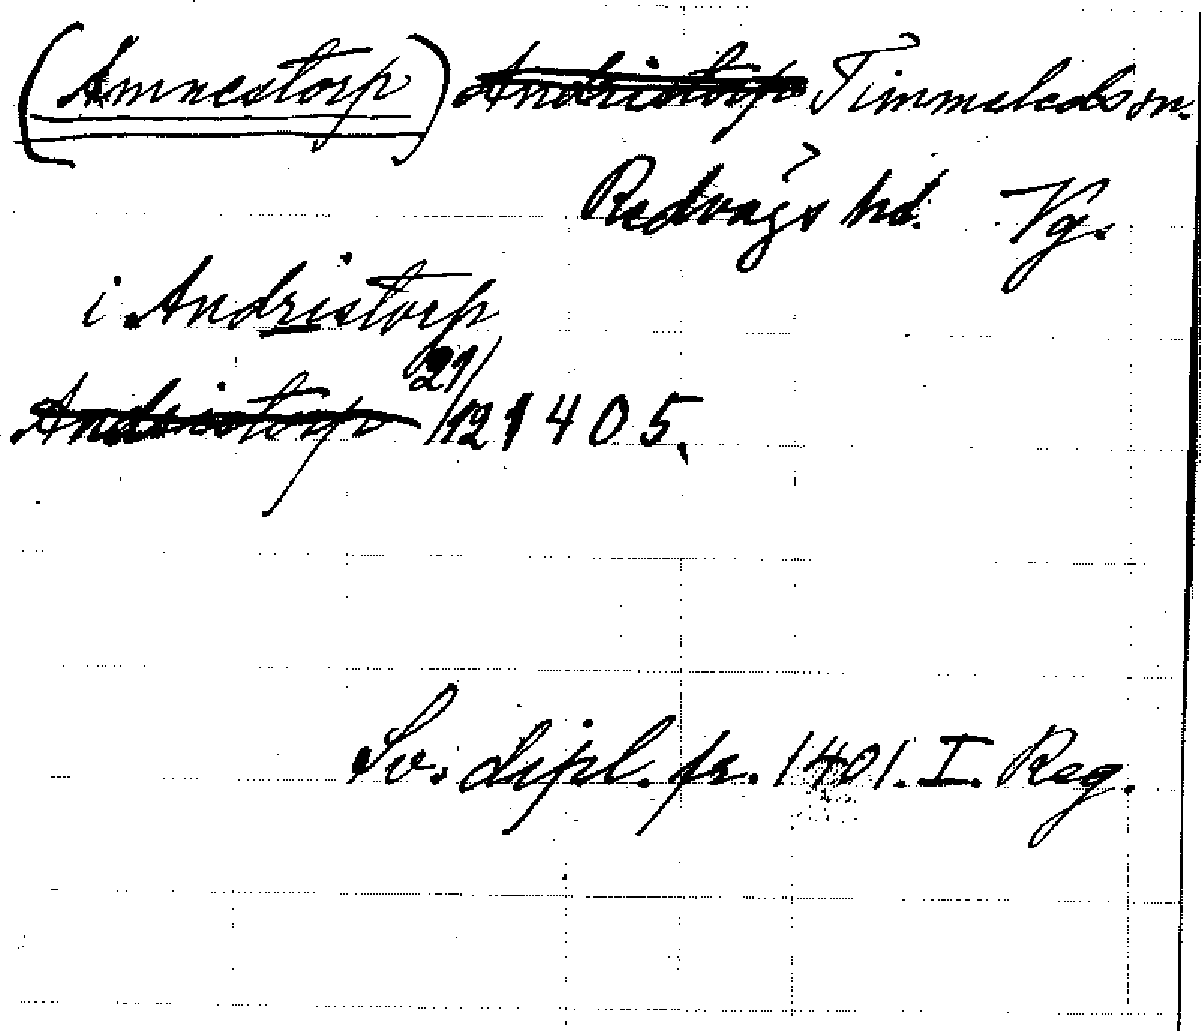 (Amnestorp) Andristorp Timmeleds sn.
Redvägs hd. Vg.
i Andristorp
Andristorp 21/12 1405.
Sv. dipl. fr. 1401. I. Reg.